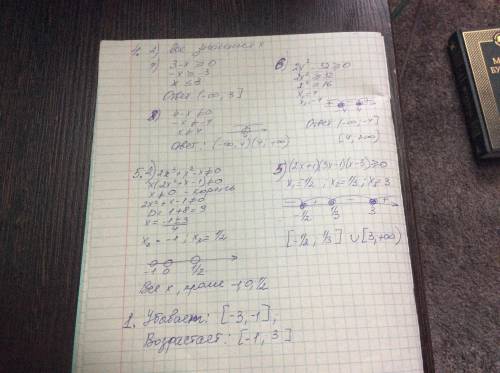 4. а) Все значения x
б) 3-x ≥ 0
-x ≥ -3
x ≤ 3
Ответ (-∞, 3]
в) 4-x ≠ 0
-x ≠ -4
x ≠ 4
Ответ: (-∞, 4)(4, +∞)
б) 2x² - 32 ≥ 0
2x² ≥ 32
x² ≥ 16
x₁=4
x₂=-4
Ответ (-∞, -4]
[4, +∞)
5. а) 2x³+x²-x≠0
x(2x²+x-1)≠0
x≠0 - корень
2x²+x-1≠0
D=1+8=9
x= -1±3
4
x₂=-1, x₃=1/2
-1 0 1/2
Все x, кроме -1, 0, 1/2
б) (2x+1)(3x-1)(x-3)≥0
x₁=-1/2, x₂=1/3, x₃=3
-1/2 1/3 3
[-1/2, 1/3] ∪ [3, +∞)
1. Убывает: [-3, -1],
Возрастает: [-1, 3]